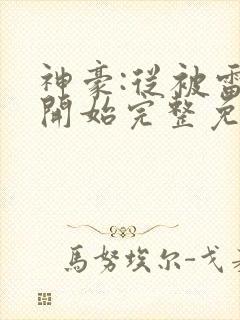 神豪:從被雷
開始完整免
馬努埃尔-戈